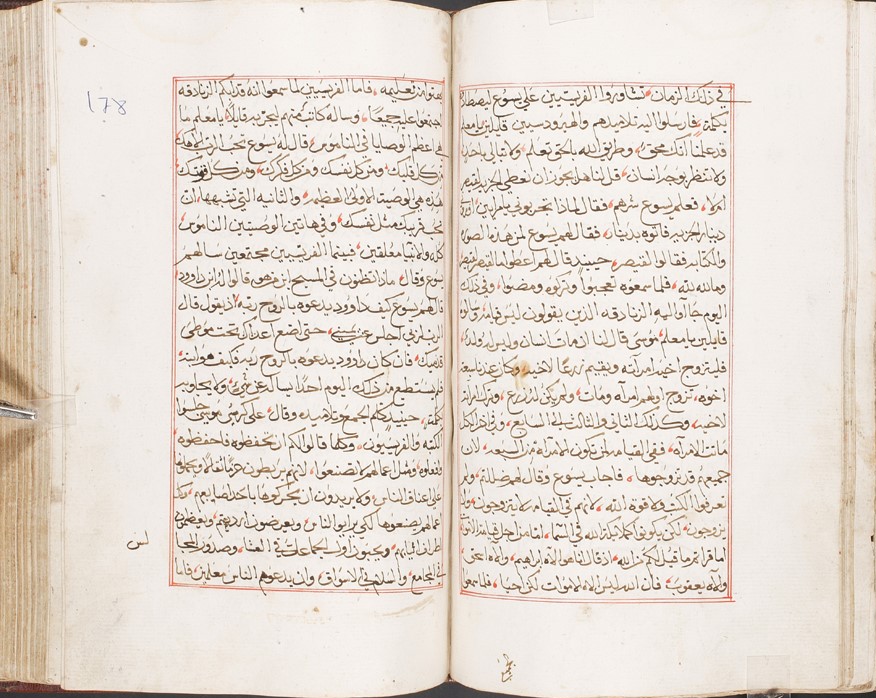 في ذلك الزمان تشاوروا الفريسيين علي يسوع ليصطادوه
بكلمة فارسلوا اليه تلاميذهم والهيرودسيين قايلين يا معلم
قد علمنا انك محق وطريق الله بالحق تعلم ولا تبالي باحد
ولا تنظر بوجه انسان قل لنا هل يجوز ان نعطي الجزية لقيصر
ام لا فعلم يسوع شرهم فقال لماذا تجربوني يا مرايين اروني
دينار الجزيه فاتوه بدينار فقال لهم يسوع لمن هذه الصوره
والكتابه فقالوا لقيصر حينيذ قال لهم اعطوا ما لقيصر لقيصر
وما لله لله فلما سمعوه تعجبوا وتركوه ومضوا وفي ذلك
اليوم جاآوا اليه الزنادقه الذين يقولون ليس قيامه وسالوه
قايلين يا معلم موسى قال لنا ان مات انسان وليس له ولد
فليتزوج اخيه امرآته ويقيم زرعًا لاخيه وكان عندنا سبعة
اخوه تزوج اولهم امرآه ومات ولم يكن له زرع وترك امراته
لاخيه وكذلك الثاني والثالث الي السابع وفي اخر الكل
ماتت الامرآه ففي القيامه لمن تكون الامرآه من السبعه لان
جميعهم قد تزوجوها فاجاب يسوع وقال لهم ضللتم ولم
تعرفوا الكتب ولا قوة الله لانهم في القيامه لا يتزوجون ولا
يزوجون لكن يكونوا كملايكة الله في السما اما من اجل قيامة الاموات
اما قراتم ما قيل لكم من الله اذ قال انا هو الاه ابرهيم والاه اسحق
والاه يعقوب فان الله ليس الاه الاموات لكن احيا فلما سمعوا
بهتوا من تعليمه فاما الفريسيين لما سمعوا انه قد ابكم الزنادقه
اجتمعوا عليه جميعًا وساله كاتب منهم ليجربه قايلًا يا معلم ما
هي اعظم الوصايا في الناموس قال له يسوع تحب الرب الاهك
من كل قلبك ومن كل نفسك ومن كل فكرك ومن كل قوتك
هذه هي الوصية الاولى العظيمه والثانيه التي تشبهها ان
تحب قريبك مثل نفسك وفي هاتين الوصيتين الناموس
كله والانبيا معلقين فبينما الفريسيين مجتمعين سالهم
يسوع وقال ماذا تظنون في المسيح ابن من هو قالوا له ابن داوود
قال لهم يسوع كيف داوود يدعوه بالروح ربه اذ يقول قال
الرب لربي اجلس عن يميني حتى اضع اعداك تحت موطى
قدميك فان كان داوود يدعوه بالروح ربه فكيف هو ابنه
فلم يستطع من ذلك اليوم احدًا يساله عن شي ولا يجاوبه
كلمه حينيذ كلم الجمع وتلاميذه وقال على كرسي موسى جلسوا
الكتبه والفريسيون وكلما قالوا لكم ان تحفظوه فاحفظوه
وافعلوه ومثل اعمالهم لا تصنعوا لانهم يربطون حزمًا ثقالًا
على اعناق الناس ولا يريدون ان يحركوها باحد اصابعهم وكل
اعمالهم يصنعوها لكي يرايوا الناس ويعرضون ارديتهم ويعظمون
اطراف ثيابهم ويحبون اول الجماعات في العشا وصدور المجالس
في المجامع والسلام في الاسواق وان يدعوهم الناس معلمين فاما
١٧٨